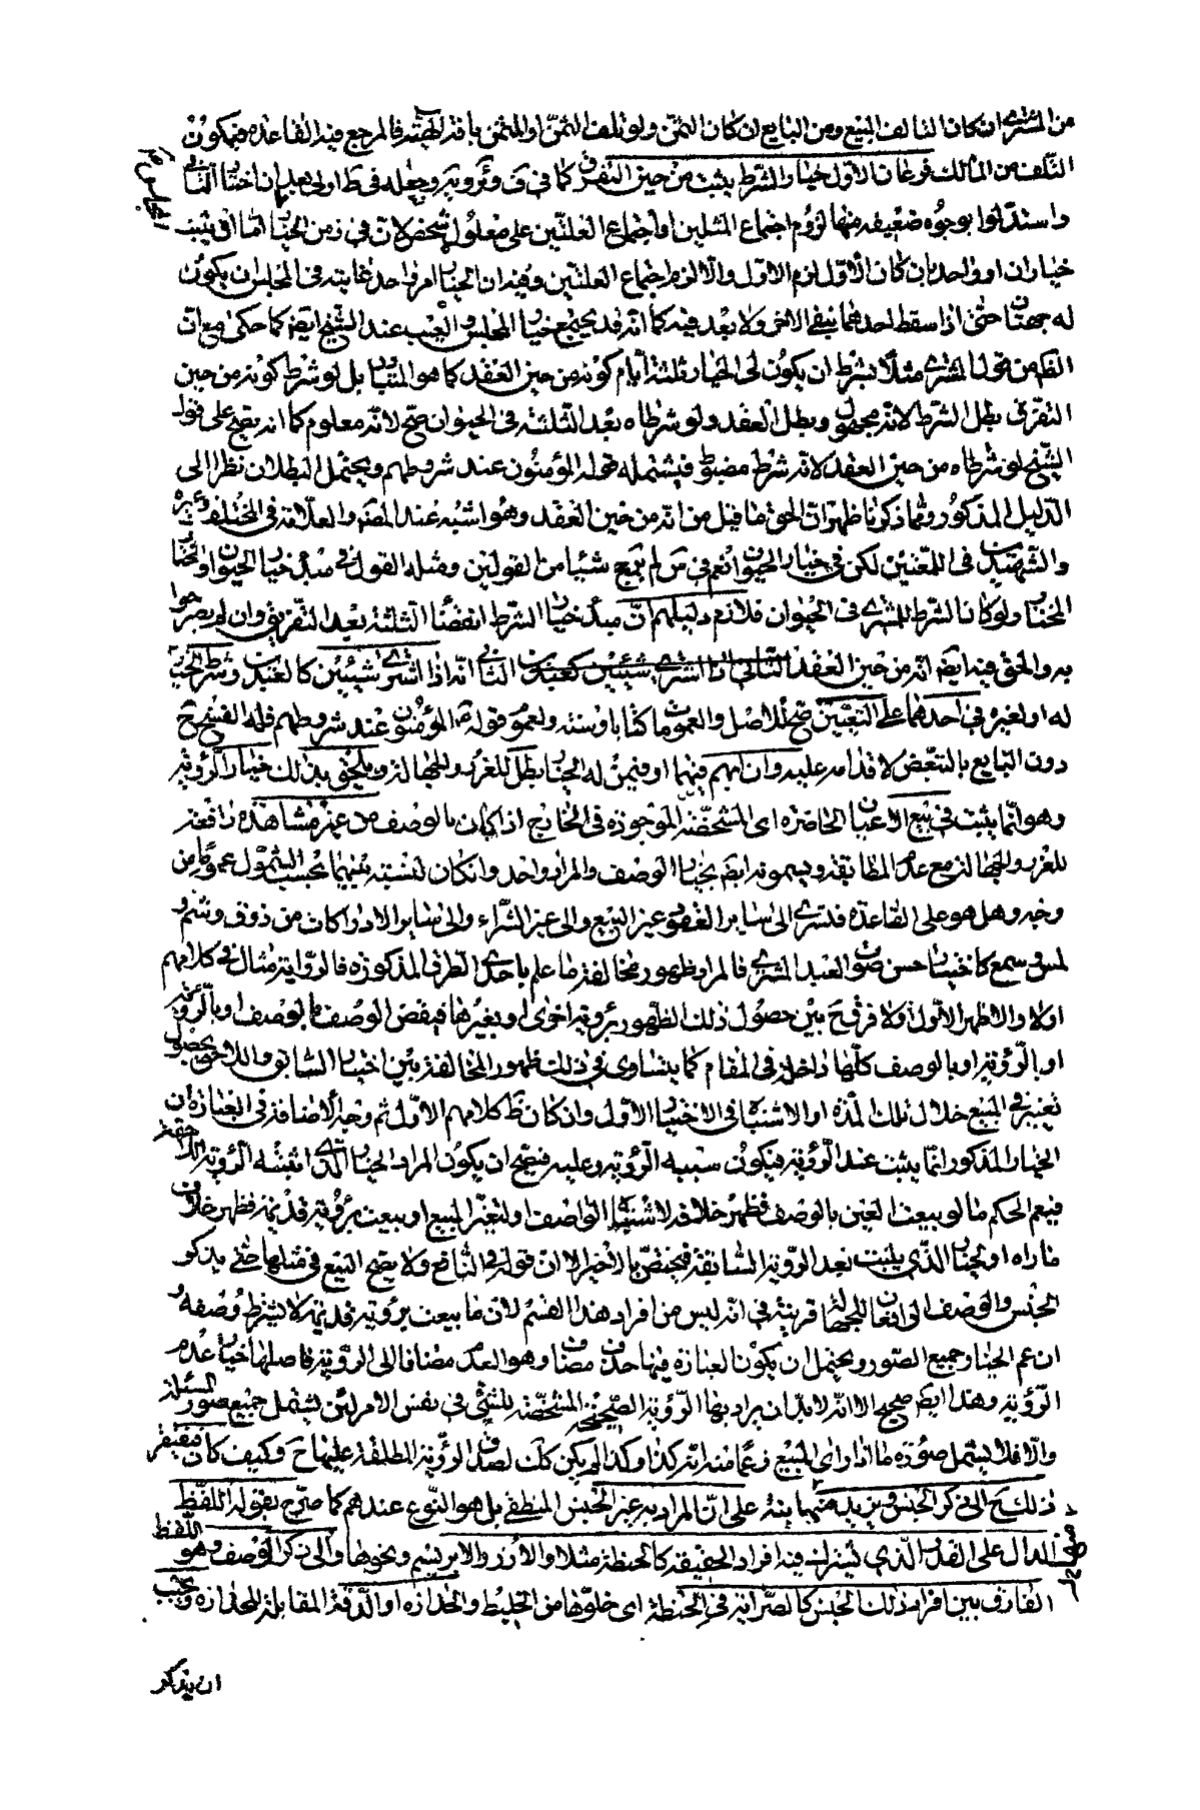 من المشتری ان کان التالف المبیع ومن البایع ان کان الثمن ولو تلف الثمن او المثمن بافة الهیة فالمرجع فیه القاعدة فیکون
التلف من المالک فرعان الاول خیار الشرط یثبت من حین التفرق کما فی ف وئر ویه وجعله فی ط اولی معللا بان
واستدلوا بوجوه ضعیفه منها لزوم اجتماع المثلین او اجتماع العلتین علی معلول شخصی لان فی زمن الخیار اما ان یثبت
خیاران او واحد بان کان الاول لزم الاول والا لزم اجتماع العلتین وفیه ان الخیار امر واحد غایته فی المجلس ان یکون
له جهتان حتی اذا سقط احدهما یبقی الاخر ولا بعد فیه کما انه قد یجتمع خیار المجلس والعیب عند الشیخ ایضا کما حکی مع ان
الظ من قول المشتری مثلا بشرط ان یکون لی الخیار ثلثة ایام کونه من حین العقد کما هو المتبادر بل لو شرط کونه من حین
التفرق بطل الشرط لانه مجهول وبطل العقد ولو شرطاه بعد الثلثة فی الحیوان صح لانه معلوم کما انه یصح علی قول
الشیخ لو شرطاه من حین العقد لانه شرط مضبوط فیشتمله قوله المؤمنون عند شروطهم ویحتمل البطلان نظرا الی
الدلیل المذکور ومما ذکرنا ظهر ان الحق ما قیل من انه من حین العقد وهو اشبه عند المص والعلامة فی المختلف
والشهیدین فی اللمعتین لکن فی خیار الحیوان انعم فی لم یمنع شیئا من القولین ومثله القول فی مبدء خیار الحیوان
ولو کانا الشرط للمشتری فی الحیوان فلازم دلیلهم ان مبدء خیار الشرط انقضاء الثلثة بعد التفریق وان لم یصرحوا
به والحق فیه ایضا انه من حین العقد الثانی انه اذا اشتری شیئین کالعبدین وشرط الخیار
له او لغیره فی احدهما علی التعیین صح للاصل والعمومات کتابا وسنة ولعموم قوله المؤمنون عند شروطهم فله الفسخ ح
دون البایع بالتبعض لاقدامه علیه وان ابهم فیهما او فیمن له الخیار بطل للغرر والجهالة ویلحق بذلک خیار الرؤیة
وهو انما یثبت فی بیع الاعیان الحاضرة ای المشخصة الموجودة فی الخارج اذا کان بالوصف من غیر مشاهدة دافعة
للغرر والجهالة مع عدم المطابقة ویسمونه ایضا بخیار الوصف والمراد واحد وان کان النسبة بینهما بحسب الشمول عموما من
وجه وهل هو علی القاعدة فتسری الی سایر العقود غیر البیع والی غیر الشراء والی سایر الادراکات من ذوق وشم و
لمس وسمع کاختبار حسن صوت العبد المشتری فالمراد ظهور مخالفة ما علم باحدی الطرق المذکورة فالروایة مثال فی کلامهم
اولا والاظهر الاول ولا فرق ح بین حصول ذلک الظهور برؤیة اخری او بغیرها فبعض الوصف بالوصف او بالرؤیة
او بالرؤیة او بالوصف کلها داخلة فی المقام کما یتساوی فی ذلک ظهور المخالفة بین اختبار السابق واللاحق بحصول
تغییر فی المبیع خلال تلک المدة او الاشتباه فی الاختبار الاول وان کان ظ کلامهم الاول ثم وجه الاضافة فی العبارة ان
الخیار المذکور انما یثبت عند الرؤیة فیکون سببه الرؤیة وعلیه فیصح ان یکون المراد الخیار الذی اثبته الرؤیة اللاحقة
فیعم الحکم ما لو بیعت العین بالوصف فظهر خلافه لاشتباه الواصف او لتغیر المبیع او بیعت برؤیة قدیمة فظهر خلاف
ما راه او الخیار الذی یثبت بعد الرؤیة السابقة فیختص بالاخیر الا ان قوله فی النافع ولا یصح البیع فی مثلها حتی یذکر
الجنس والوصف الرافعان للجهالة قرینة فی انه لیس من افراد هذا القسم لان ما بیعت برؤیة قدیمة لا یشترط وصفه و
ان عم الخیار جمیع الصور ویحتمل ان یکون العبارة فیها حذف مضاف وهو العدم مضافا الی الرؤیة فاصلها خیار عدم
الرؤیة وهذا ایضا صحیح الا انه لا بد ان یراد بها الرؤیة الصحیحة المشخصة للشئ فی نفس الامر لئن یشمل جمیع صور المسئلة
والا فلا یشمل صورة ما اذا رای المبیع زعما منه انه کذا وکذا ولم یکن کک لصدق الرؤیة المطلقة علیها ح وکیف کان فیفتقر
ذلک ح الی ذکر الجنس ونرید منهما بنه علی ان المراد به غیر الجنس المنطقی بل هو النوع عندهم کما صرح بقوله اللفظ
الدال علی القدر الذی یشترک فیه افراد الحقیقة کالحنطة مثلا والارز والابریسم ونحوها والی ذکر الوصف وهو اللفظ
الفارق بین افراد ذلک الجنس کالصرابة فی الحنطة ای خلوها من الخلیط والحدارة او الدقة المقابلة للحدارة ویجب
ان یذکر